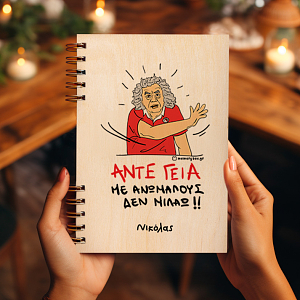 memoryboo.gr
ΑΝΤΕ ΓΕΙΑ
ΜΕ ΑΝΩΜΑΛΟΥΣ
ΔΕΝ ΜΙΛΑΩ!!
Νικόλας